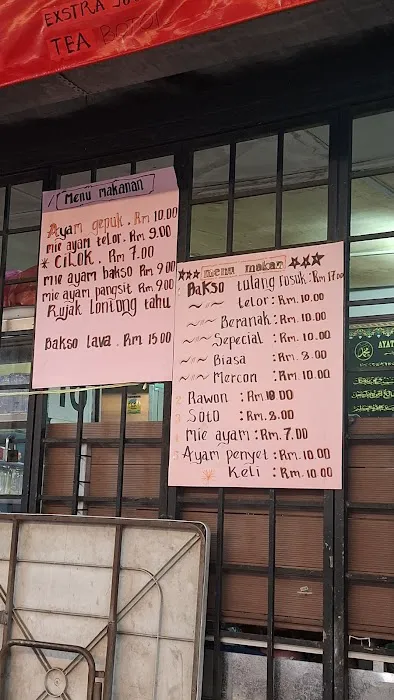 EXSTRA
TEA BOTOL
Menu makanan
Ayam gepuk . Rm 10.00
mie ayam telor. Rm 9.00
* Cilok . Rm 7.00
mie ayam bakso Rm 9.00
mie ayam pangsit Rm 9.00
Rujak Lontong tahu
Bakso Lava . Rm 15.00
menu makan
Bakso tulang rusuk : Rm 17.00
~〃~ telor : Rm. 10.00
~〃~ Beranak : Rm. 10.00
~〃~ Sepecial : Rm. 10.00
~〃~ Biasa : Rm. 8.00
~〃~ Mercon : Rm. 10.00
2 Rawon : Rm 10.00
3 Soto : Rm. 8.00
4 mie ayam : Rm. 7.00
5 Ayam penyet : Rm. 10.00
* Keli : Rm. 10.00
AYAT